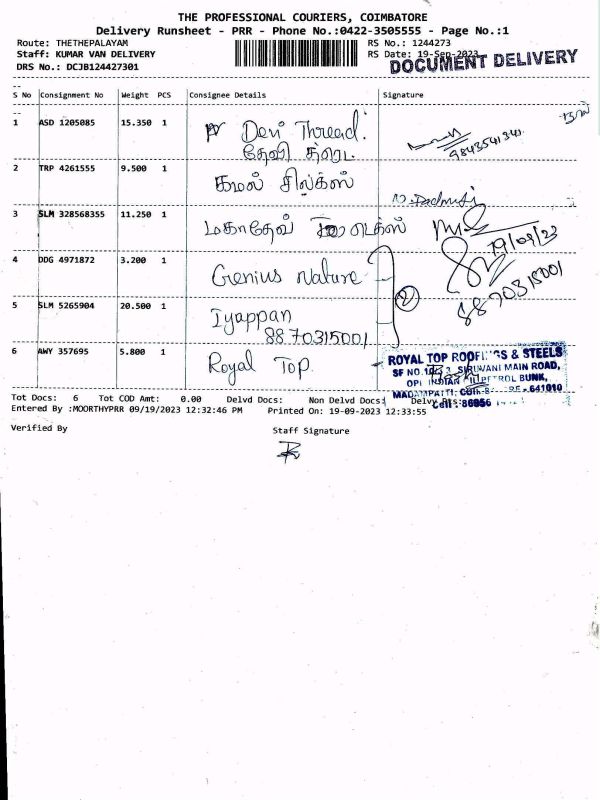 THE PROFESSIONAL COURIERS, COIMBATORE
Delivery Runsheet - PRR - Phone No.:0422-3505555 - Page No.:1
Route: THETHEPALAYAM RS No.: 1244273
Staff: KUMAR VAN DELIVERY RS Date: 19-Sep-2023
DRS No.: DCJB124427301 DOCUMENT DELIVERY
S No Consignment No Weight PCS Consignee Details Signature
1 ASD 1205085 15.350 1 Devi Thread
தேவி த்ரைட 9843541341
2 TRP 4261555 9.500 1 கமல் சில்க்ஸ்
3 SLM 328568355 11.250 1 மகாதேவ் டைக்ஸ்
19/09/23
4 DDG 4971872 3.200 1 Genius Nature
2 8870315001
5 SLM 5265904 20.500 1 Iyappan
8870315001
6 AWY 357695 5.800 1 Royal Top
ROYAL TOP ROOFINGS & STEELS
SIRUVANI MAIN ROAD,
INDIAN PETROL BUNK,
641010
Tot Docs: 6 Tot COD Amt: 0.00 Delvd Docs: Non Delvd Docs: Delvy Pts:
Entered By :MOORTHYPRR 09/19/2023 12:32:46 PM Printed On: 19-09-2023 12:33:55
Verified By Staff Signature